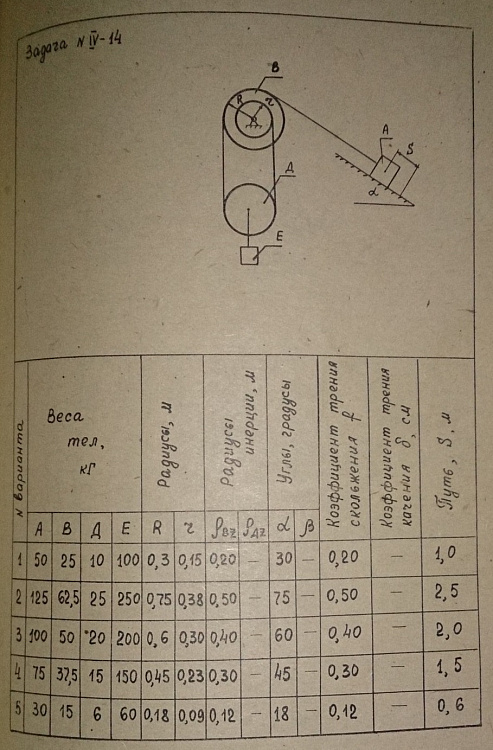 Задача N IV-14
B
R
r
A
S
α
Д
E
N варианта
Веса тел, кГ
Радиусы, м
Радиусы инерции, м
Углы, градусы
Коэффициент трения скольжения f
Коэффициент трения качения δ, см
Путь, S, м
A B Д E R r ρBZ ρДZ α β
1 50 25 10 100 0,3 0,15 0,20 — 30 — 0,20 — 1,0
2 125 62,5 25 250 0,75 0,38 0,50 — 75 — 0,50 — 2,5
3 100 50 20 200 0,6 0,30 0,40 — 60 — 0,40 — 2,0
4 75 37,5 15 150 0,45 0,23 0,30 — 45 — 0,30 — 1,5
5 30 15 6 60 0,18 0,09 0,12 — 18 — 0,12 — 0,6